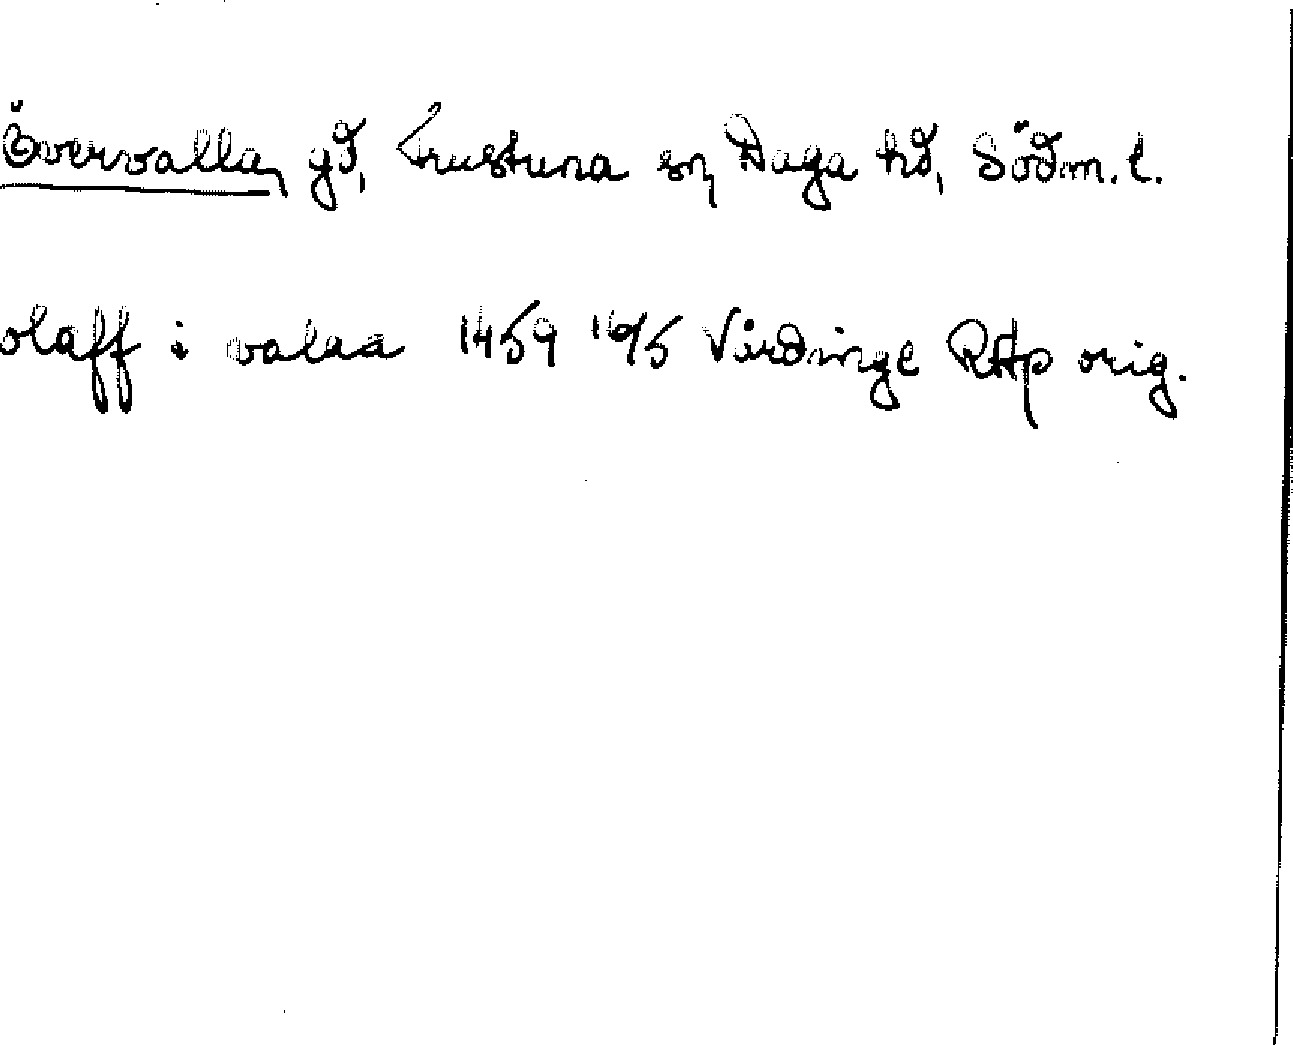 Övervalla, gd, Frustuna sn, Daga hd, Södm. l.
olaff i valaa 1459 16/5 Vårdinge RAp orig.